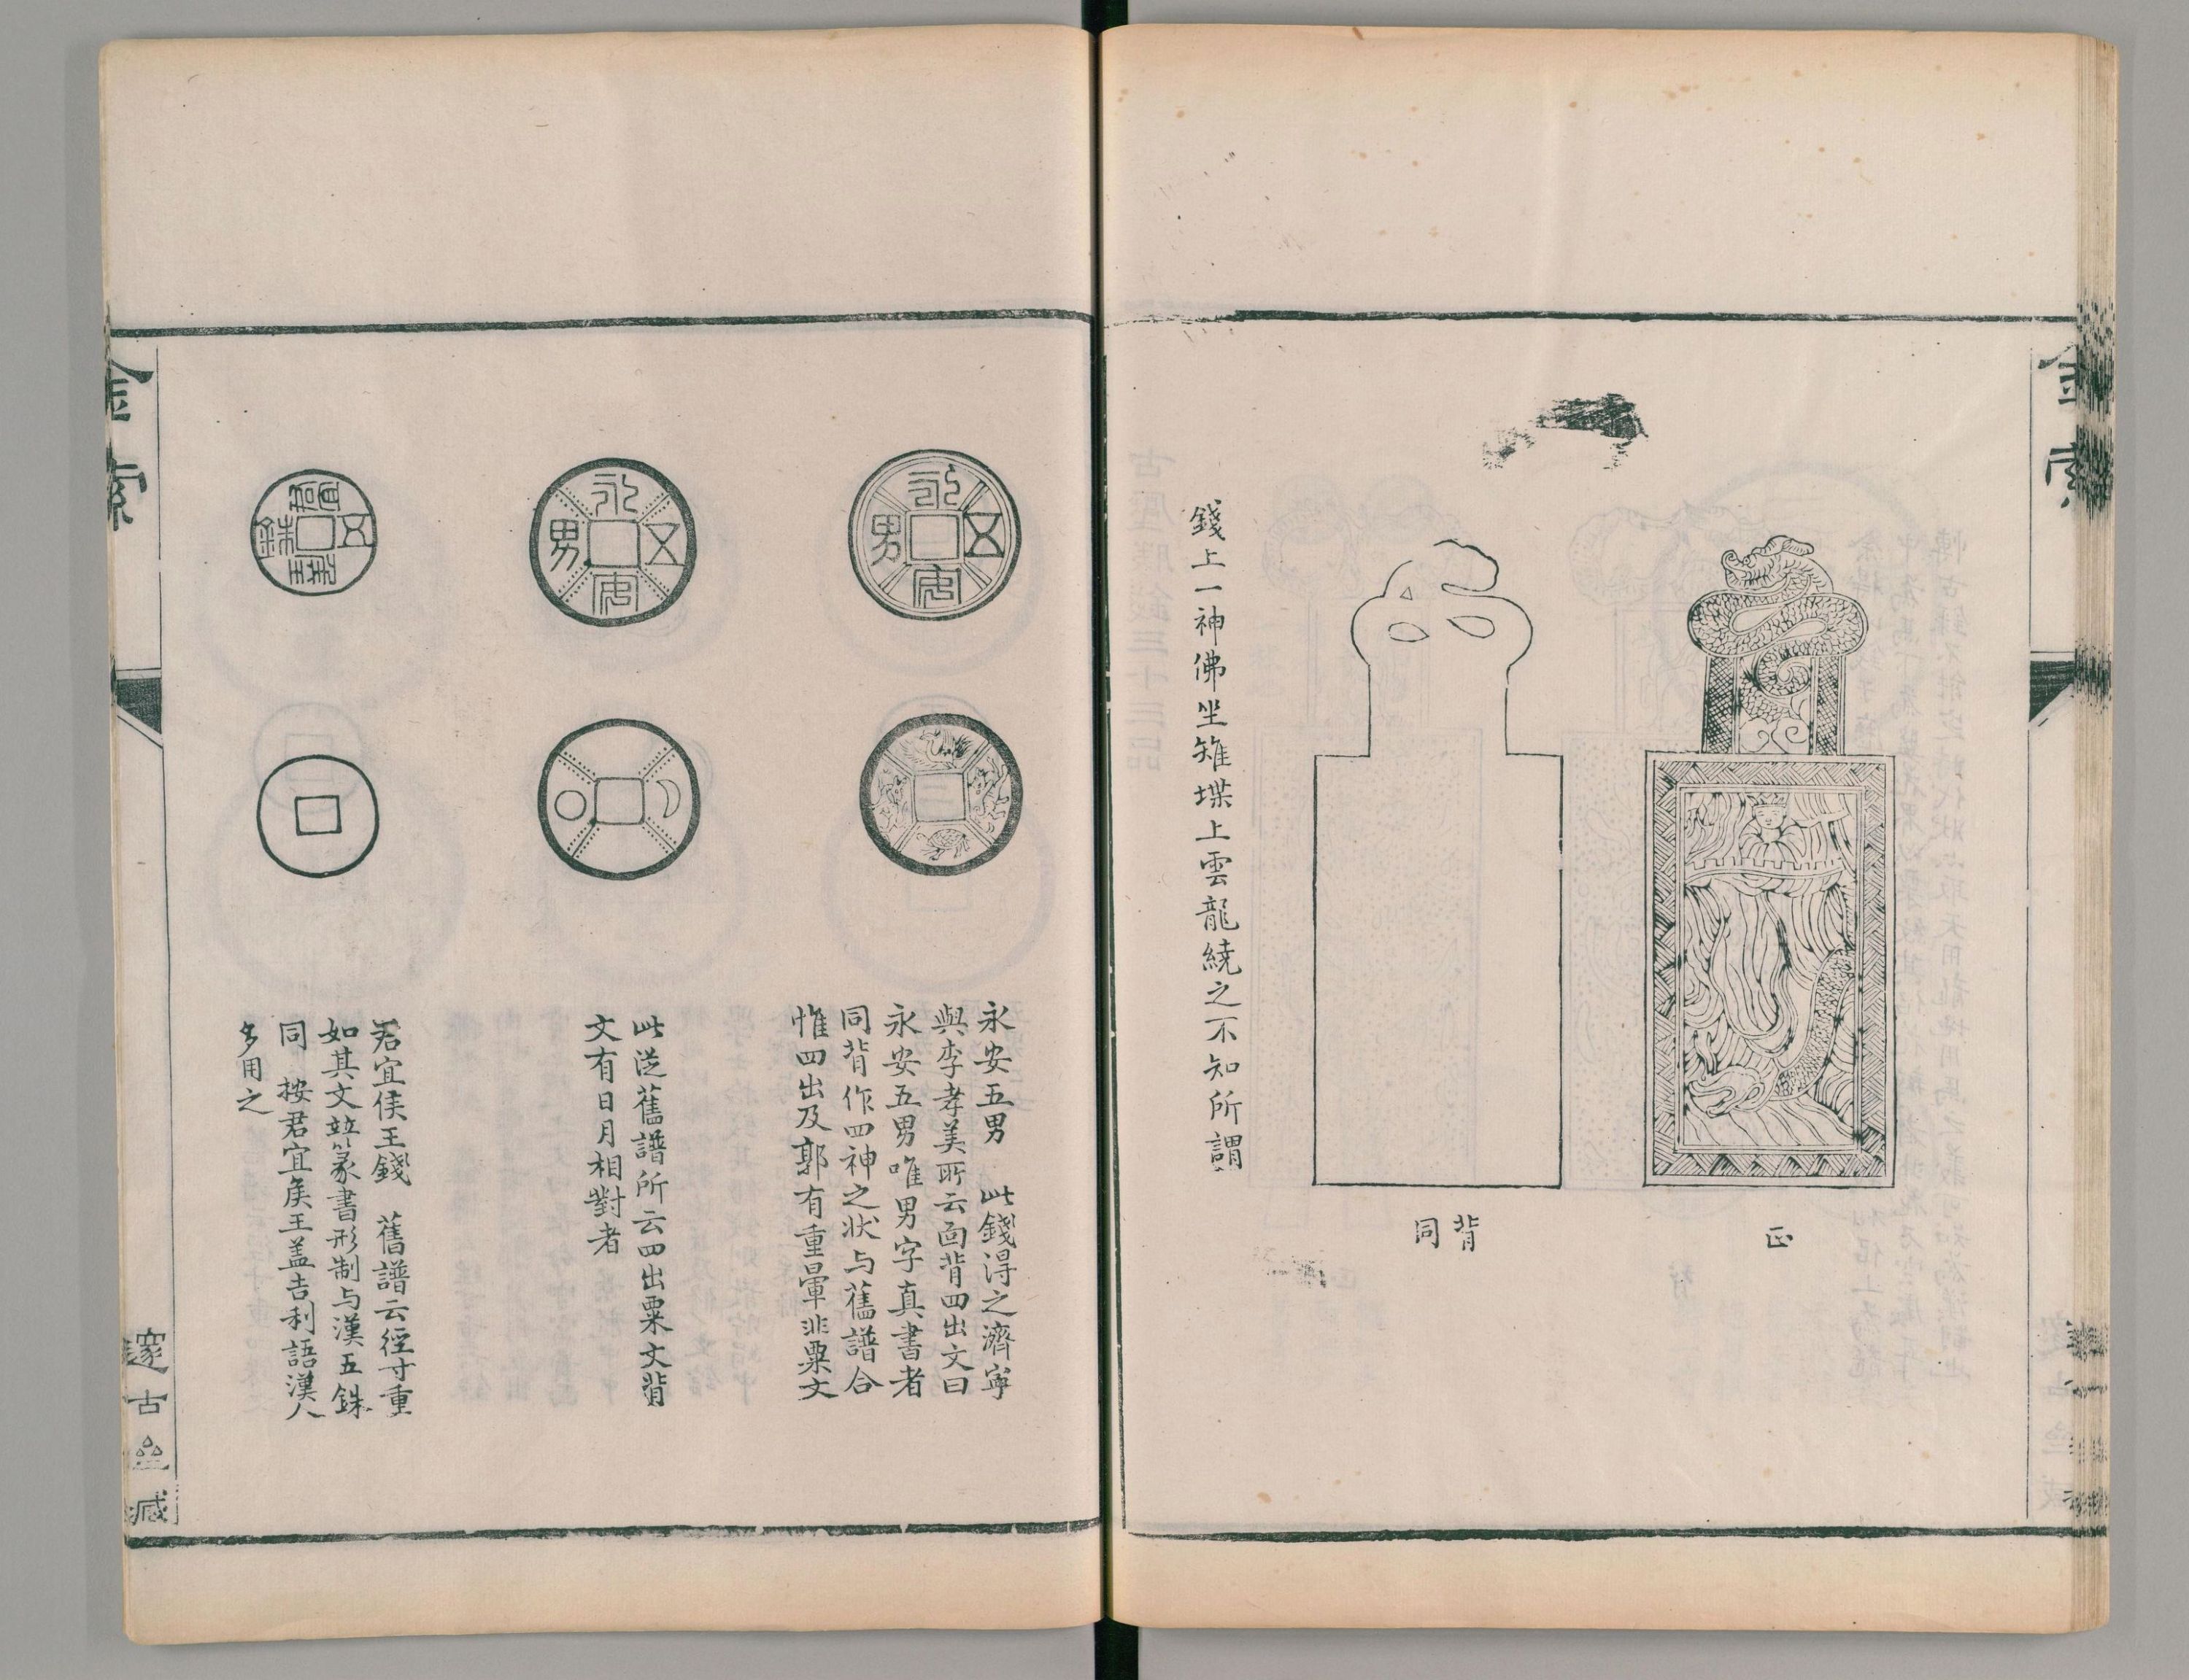 金索
正
背同
錢上一神佛坐雉堞上雲龍繞之不知所謂
永安五男
永安五男　此錢得之濟寧
與李孝美所云面背四出文曰
永安五男唯男字真書者
同背作四神之狀与舊譜合
惟四出及郭有重暈非粟文
永安五男
此從舊譜所云四出粟文背
文有日月相對者
五銖
君宜侯王錢　舊譜云徑寸重
如其文竝篆書形制与漢五銖
同　按君宜矦王蓋吉利語漢人
多用之
金索
邃古𡶇臧